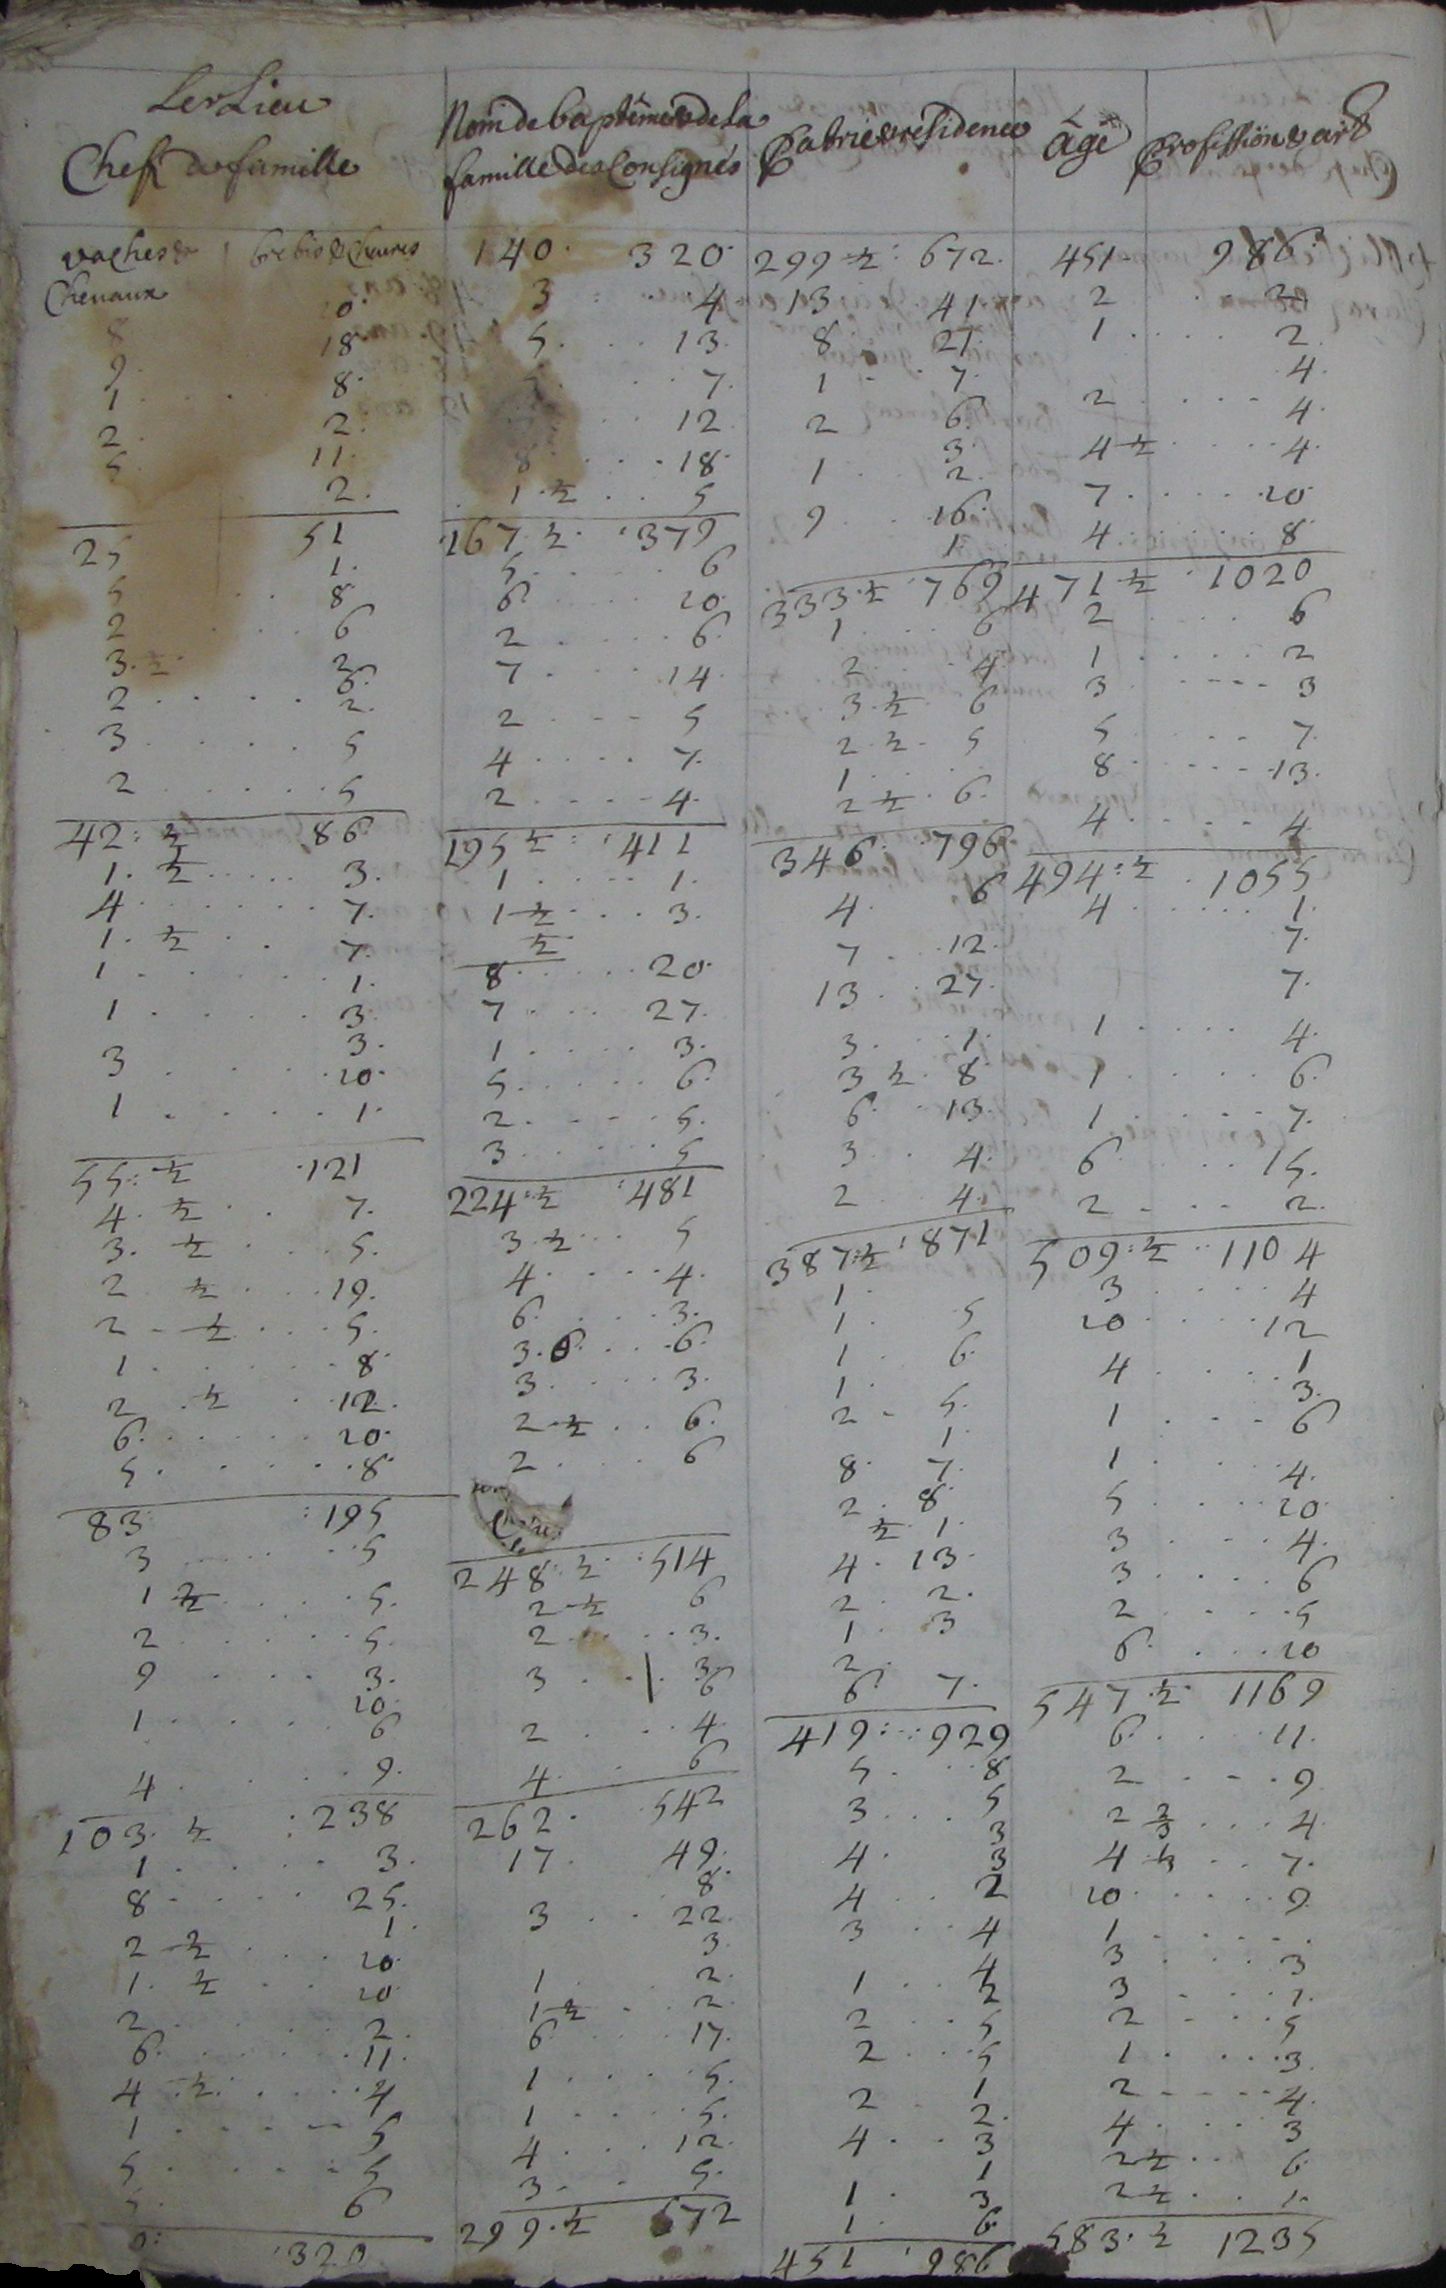 Le Lieu
Chefs de famille
Nom de baptême & de la
famille des Consignés
Patrie & residence
âge
Profession & art
vaches & brebis & Chevres
Chevaux
20
8 18
9 8
1 2
2 11
5 2
25 51
1
5 8
2 6
3 ½ 3
2 2
3 5
2 5
42 ½ 86
1 ½ 3
4 7
1 ½ 7
1 1
1 3
3
3 10
1 1
55 ½ 121
4 ½ 7
3 ½ 5
2 ½ 19
2 ½ 5
1 8
2 ½ 12
6 10
5 8
83 195
3 5
1 ½ 5
2 5
9 3
10
1 6
4 9
103 ½ 238
1 3
8 25
1
2 ½ 10
1 ½ 10
2 2
6 11
4 ½ 4
1 5
5 5
5 6
320
140 320
3 4
5 13
7
12
8 18
1 ½ 5
167 ½ 379
5 6
6 10
2 6
7 14
2 5
4 7
2 4
195 ½ 411
1 1
1 ½ 3
½
8 20
7 27
1 3
5 6
2 5
3 5
224 ½ 481
3 ½ 5
4 4
6 3
3 6 6
3 3
2 ½ 6
2 6
248 ½ 514
2 ½ 6
2 3
3 3
6
2 4
4 6
262 542
17 49
8
3 22
3
1 2
1 ½ 2
6 17
1 5
1 5
4 12
3 5
299 ½ 672
299 ½ 672
13 41
8 21
1 7
2 6
3
1 2
9 16
1
333 ½ 769
1 6
2 4
3 ½ 6
2 ½ 5
1
2 ½ 6
346 796
4 6
7 12
13 27
3 1
3 ½ 8
6 13
3 4
2 4
387 ½ 871
1
1 5
1 6
1
2 5
1
8 7
2 8
½ 1
4 13
2 2
1 3
2
6 7
419 929
5 8
3 5
3
4 3
4 2
3 4
4
1 2
2 5
2 5
2 1
2
4 3
1
1 3
1 6
451 986
451 986
2
1 2
4
2 4
4 ½ 4
7 10
4 8
471 ½ 1020
2 6
1 2
3 3
5 7
8 13
4 4
494 ½ 1055
4 1
7
7
1 4
1 6
1 7
6 15
2 2
509 ½ 1104
3 4
10 12
4 1
3
1 6
1 4
5 10
3 4
3 6
2 5
6 10
547 ½ 1169
6 11
2 9
2 4
4 7
10 9
1
3 3
3 1
2 5
1 3
2 4
4 3
2 ½ 6
2 ½ 1
583 ½ 1235